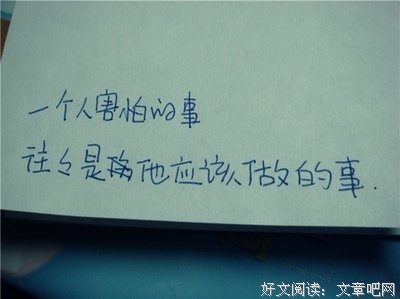 一个人害怕的事
往々是他应该做的事.
好文阅读：文章吧网